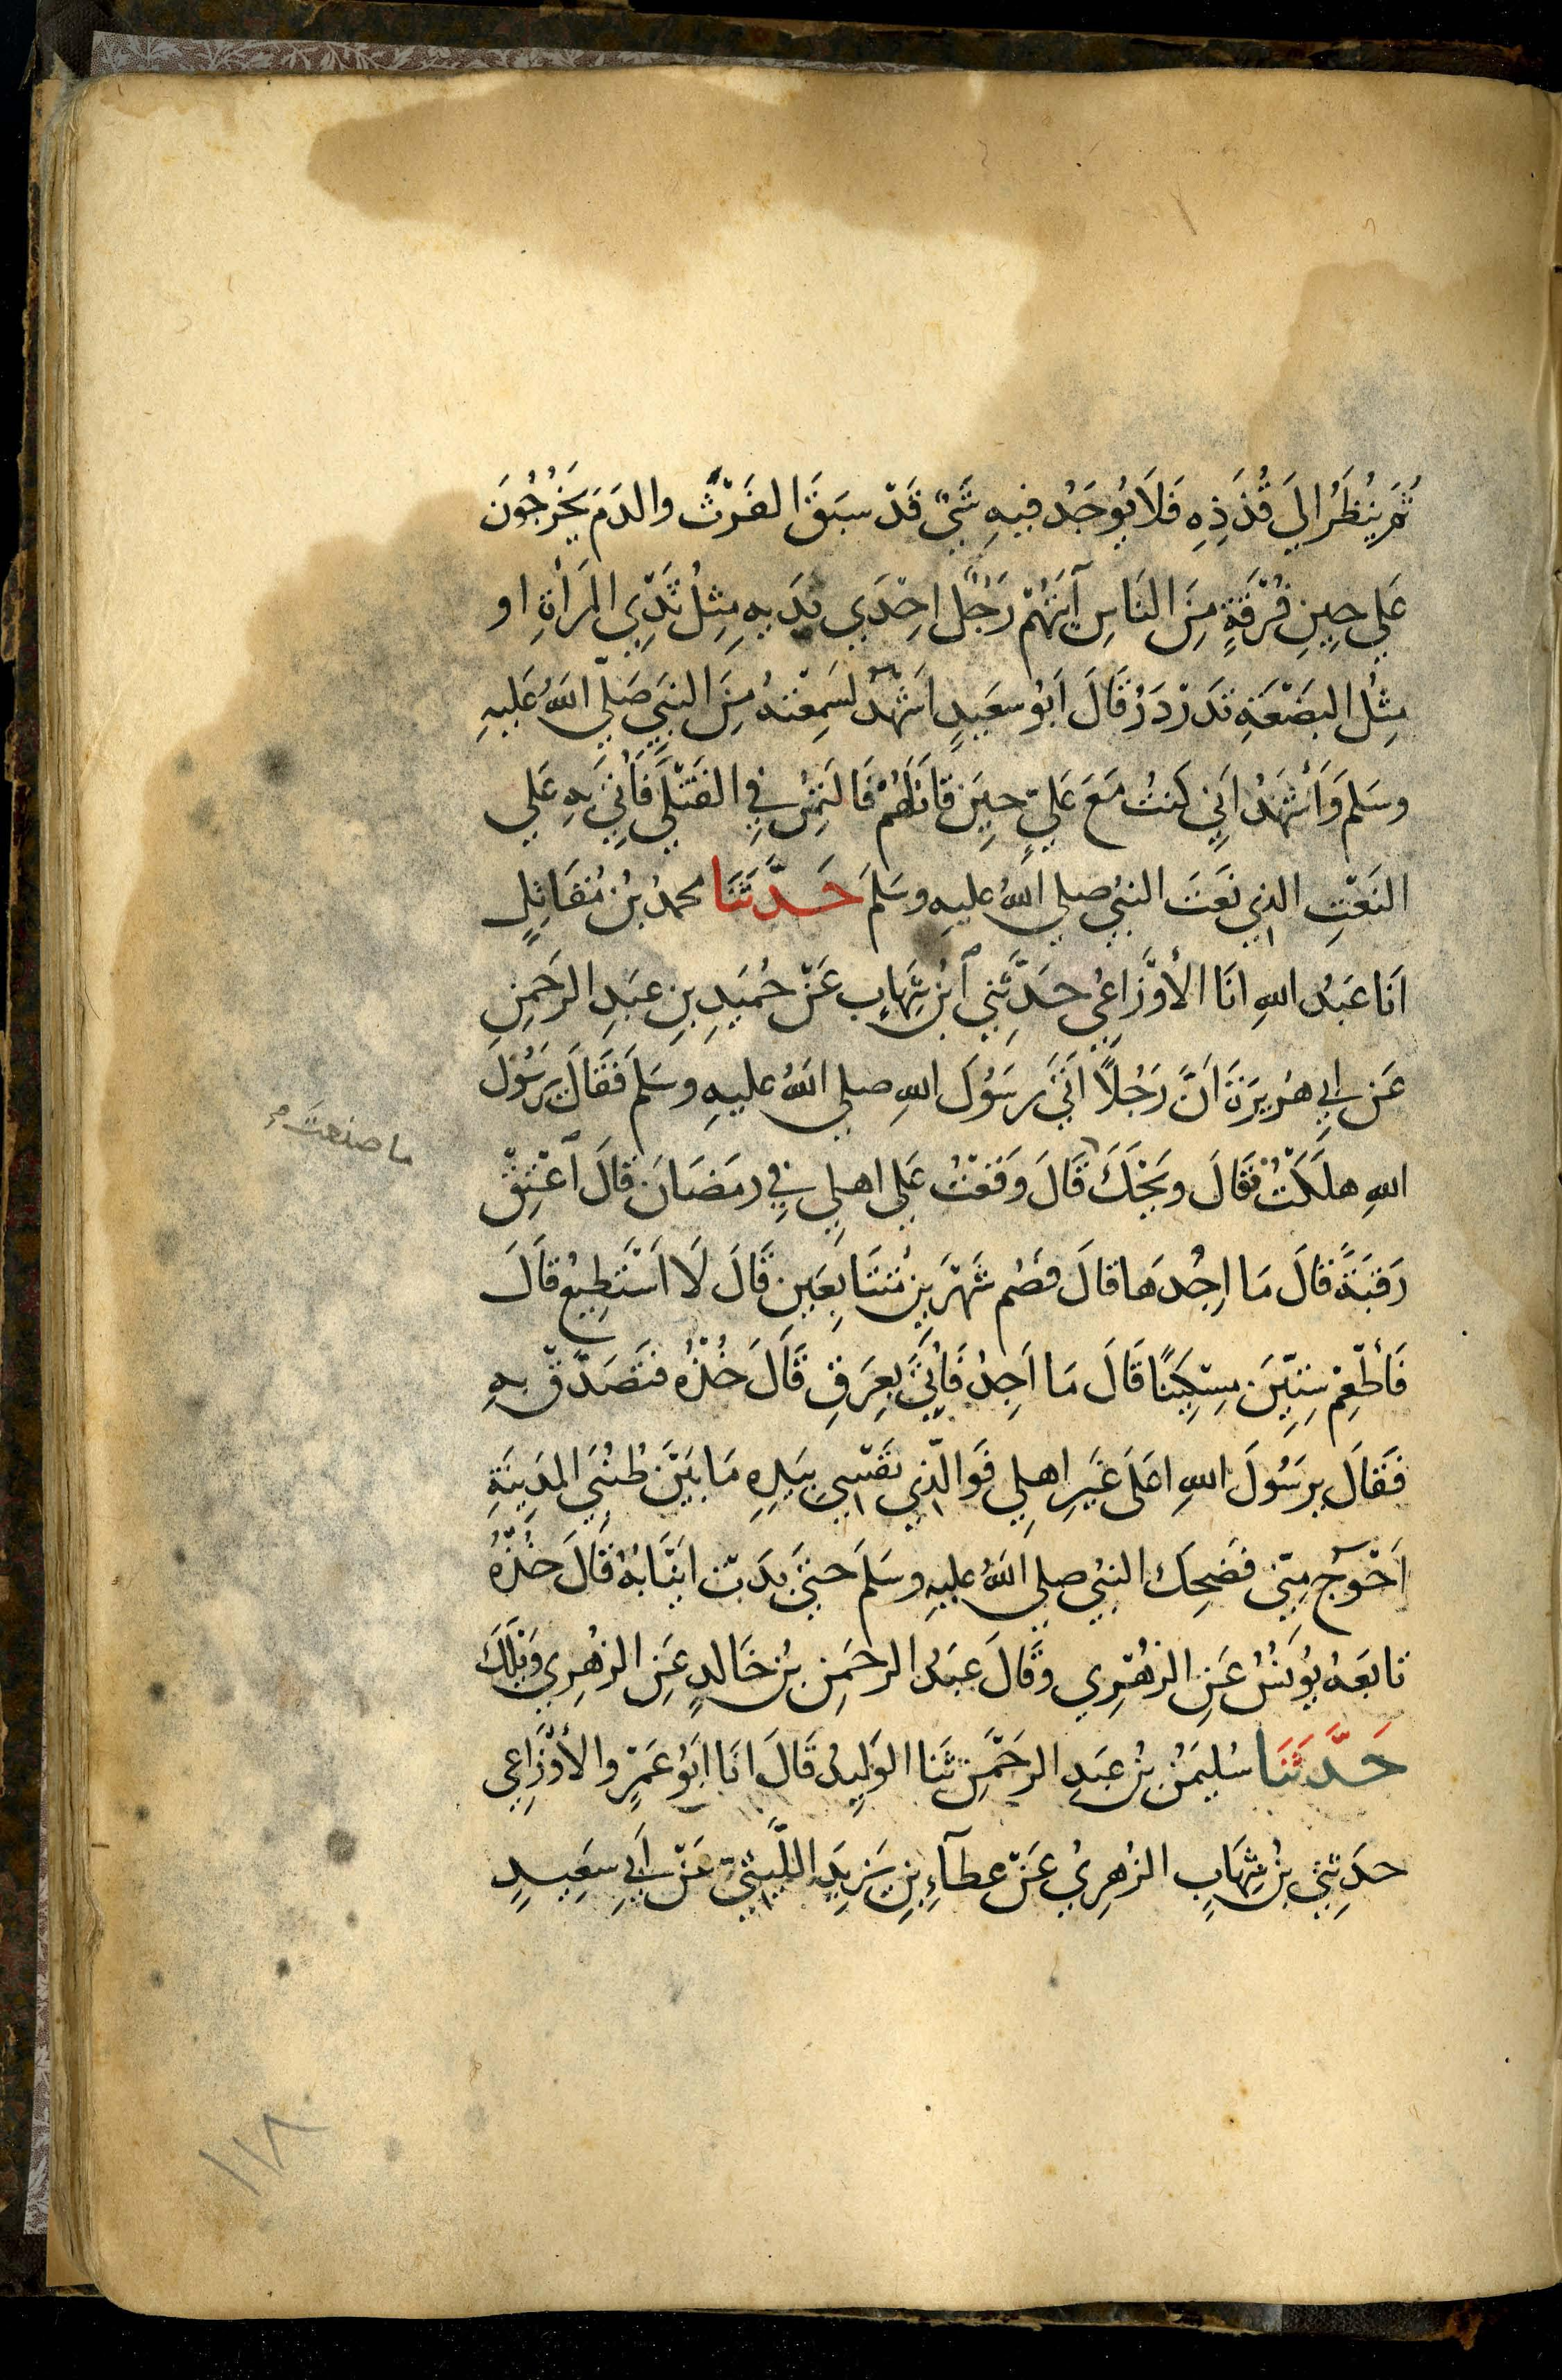 ثُمَّ يُنْظَرُ الَى قُذَذِهِ فَلَا يُوجَدُ فيهِ شَيْءٌ قَدْ سبَقَ الفَرْثَ والدَمَ يَخْرُجُونَ
عَلي حِينِ فُرْقَةٍ مِنَ النَاسِ آيَتُهُمْ رَجُلٌ احِدَي يَدَيهِ مِثلُ ثَدْيِ المَرأَةِ او
مِثلُ البَضْعَةِ تَدَرْدَرُ قَالَ ابُو سعَيدٍ اَشهَدُ لسَمِعْتهُ مِنَ النبَي صَلّي اللهُ عَليهِ
وسَلمَ وَأَشهَدُ اَنيِ كنتُ مَعَ عَليٍ حِينَ قاتَلَهُمْ فَالتُمِسَ فِي القَتْلَي فَأُتِيَ بهِ عَلي
النَعْتِ الذِي نَعَتَ النبيُ صلي اللهُ عليهِ وسَلمَ حَدَّثَنَا محمدُ بنُ مُقَاتِلٍ
انَا عَبدُ اللهِ انَا الأوْزَاعِيُ حَدَّثَنِي اْبنُ شِهَابٍ عَنْ حُمَيدِ بنِ عَبدِ الرَحمنِ
عَن ابي هُريرَةَ انَّ رَجُلًا اتَي رسَوُلَ اللهِ صلي اللهُ عليهِ وسَلمَ فَقَالَ يرَسُوُلَ
اللهِ هلَكْتُ فقَالَ ويَحْكَ قَالَ وَقَعْتُ عَلي اهلِي فِي رمَضَانَ قالَ اعْتِقْ
رَقبَةً قالَ مَا اجِدُهَا قالَ فصُم شَهْرَينِ مُتتَابِعَينِ قَالَ لَا اَسْتَطِيعُ قَالَ
فَأطْعِمْ سِتيِّنَ مِسْكِينًا قَالَ مَا اَجِدُ فَأُتِيَ بعِرَقٍ قَالَ خُذْهُ فتَصَدَّقْ بهِ
فَقَالَ يرسَوُلَ اللهِ اعَلَى غَيرِ اهلِي فَوالّذِي نَفْسِي بيَدِهِ مَا بَيَنَ طُنُبَيِ المَدِينَةِ
اَحْوَجُ مِنّي فضَحِكَ النبيُ صلي اللهُ عليهِ وسَلمَ حتَيَ بدَتْ انَيْابُهُ قَالَ خُذْهُ
تابَعَهُ يوُنسُ عَنِ الزُهْرِي وقَالَ عَبدُ الرحمَنِ بنُ خَالدٍ عَنِ الزهُرِي وَيْلكَ
حَدَّثَنَا سُليمَنُ بنُ عَبدِ الرحَمْنِ ثَنا الوَلِيدُ قَالَ انَا ابَوُ عَمْرٍو الأوْزَاعِي
حدَثنِي بنُ شِهَابٍ الزُهرِيُ عَنْ عطَآءِ بنِ يَزيدَ اللّيْثيِ عَنْ ابي سعَيدٍ
ما صنعتَ
١١٨